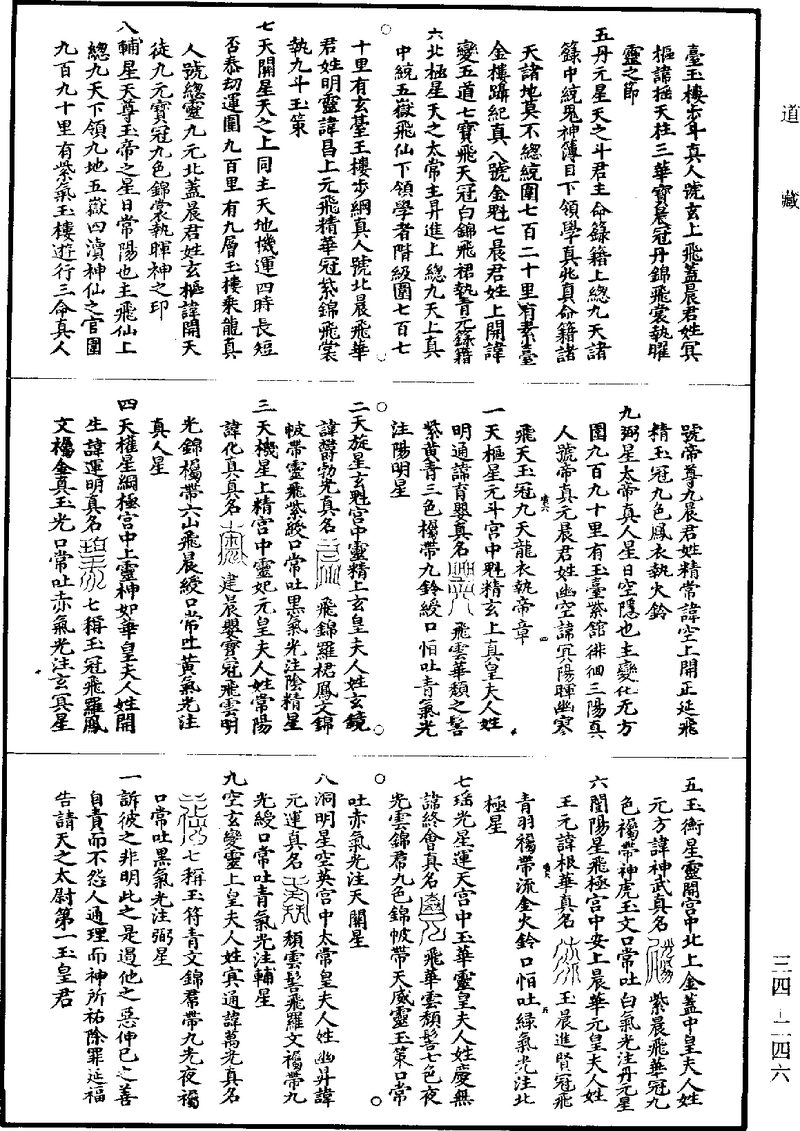 道藏
臺玉樓步斗真人號玄上飛蓋晨君姓冥
樞諱極天柱三華寶晨冠丹錦飛裳執曜
靈之節
五丹元星天之斗君主命錄籍上總九天諸
錄中統鬼神簿目下領學真兆真命籍諸
天諸地莫不總統圍七百二十里有素臺
金樓躡紀真人號金魁七晨君姓上開諱
變五道七寶飛天冠白錦飛裙執青元籙籍
六北極星天之太常主昇進上總九天上真
中統五嶽飛仙下領學者階級圍七百七
十里有玄臺玉樓步綱真人號北晨飛華
君姓明靈諱昌上元飛精華冠紫錦飛裳
執九斗玉策
七天關星天之上同主天地機運四時長短
否泰劫運圍九百里有九層玉樓乘龍真
人號總靈九元北蓋晨君姓玄樞諱開天
徒九元寶冠九色錦裳執暉神之印
八輔星天尊玉帝之星日常陽也主飛仙上
總九天下領九地五嶽四瀆神仙之官圍
九百九十里有紫氣玉樓遊行三命真人
號帝尊九晨君姓精常諱空上開正延飛
精玉冠九色鳳衣執火鈴
九弼星太帝真人星日空隱也主變化无方
圍九百九十里有玉臺紫館徘徊三陽真
人號帝真元晨君姓幽空諱冥陽暉幽寥
飛天玉冠九天龍衣執帝章
一天樞星元斗宮中魁精玄上真皇夫人姓
明通諱育嬰真名 飛雲華頹之髻
紫黃青三色襡帶九鈴綬口恒吐青氣光
注陽明星
二天旋星玄魁宮中靈精上玄皇夫人姓玄鏡
諱鬱勃光真名 飛錦羅裙鳳文錦
帔帶靈飛紫綬口常吐黑氣光注陰精星
三天機星上精宮中靈妃元皇夫人姓常陽
諱化真真名 建晨嬰寶冠飛雲明
光錦襡帶六山飛晨綬口常吐黃氣光注
真人星
四天權星綱極宮中上靈神妃華皇夫人姓開
生諱運明真名 七稱玉冠飛羅鳳
文襡金真玉光口常吐赤氣光注玄冥星
五玉衡星靈開宮中北上金蓋中皇夫人姓
元方諱神武真名 紫晨飛華冠九
色襡帶神虎玉文口常吐白氣光注丹元星
六闓陽星飛極宮中安上晨華元皇夫人姓
王元諱根華真名 玉晨進賢冠飛
青羽襡帶流金火鈴口恒吐綠氣光注北
極星
七瑶光星運天宮中玉華靈皇夫人姓慶無
諱終會真名 飛華雲頹髻七色夜
光雲錦帬九色錦帔帶天威靈玉策口常
吐赤氣光注天關星
八洞明星空英宮中太常皇夫人姓幽昇諱
元運真名 頹雲髻飛羅文襡帶九
光綬口常吐青氣光注輔星
九空玄變靈上皇夫人姓冥通諱萬光真名
七稱玉符青文錦帬帶九光夜襡
口常吐黑氣光注弼星
一訴彼之非明此之是遏他之惡伸已之善
自責而不怨人通理而神所祐除罪延福
告請天之太尉第一玉皇君
三四-二四六